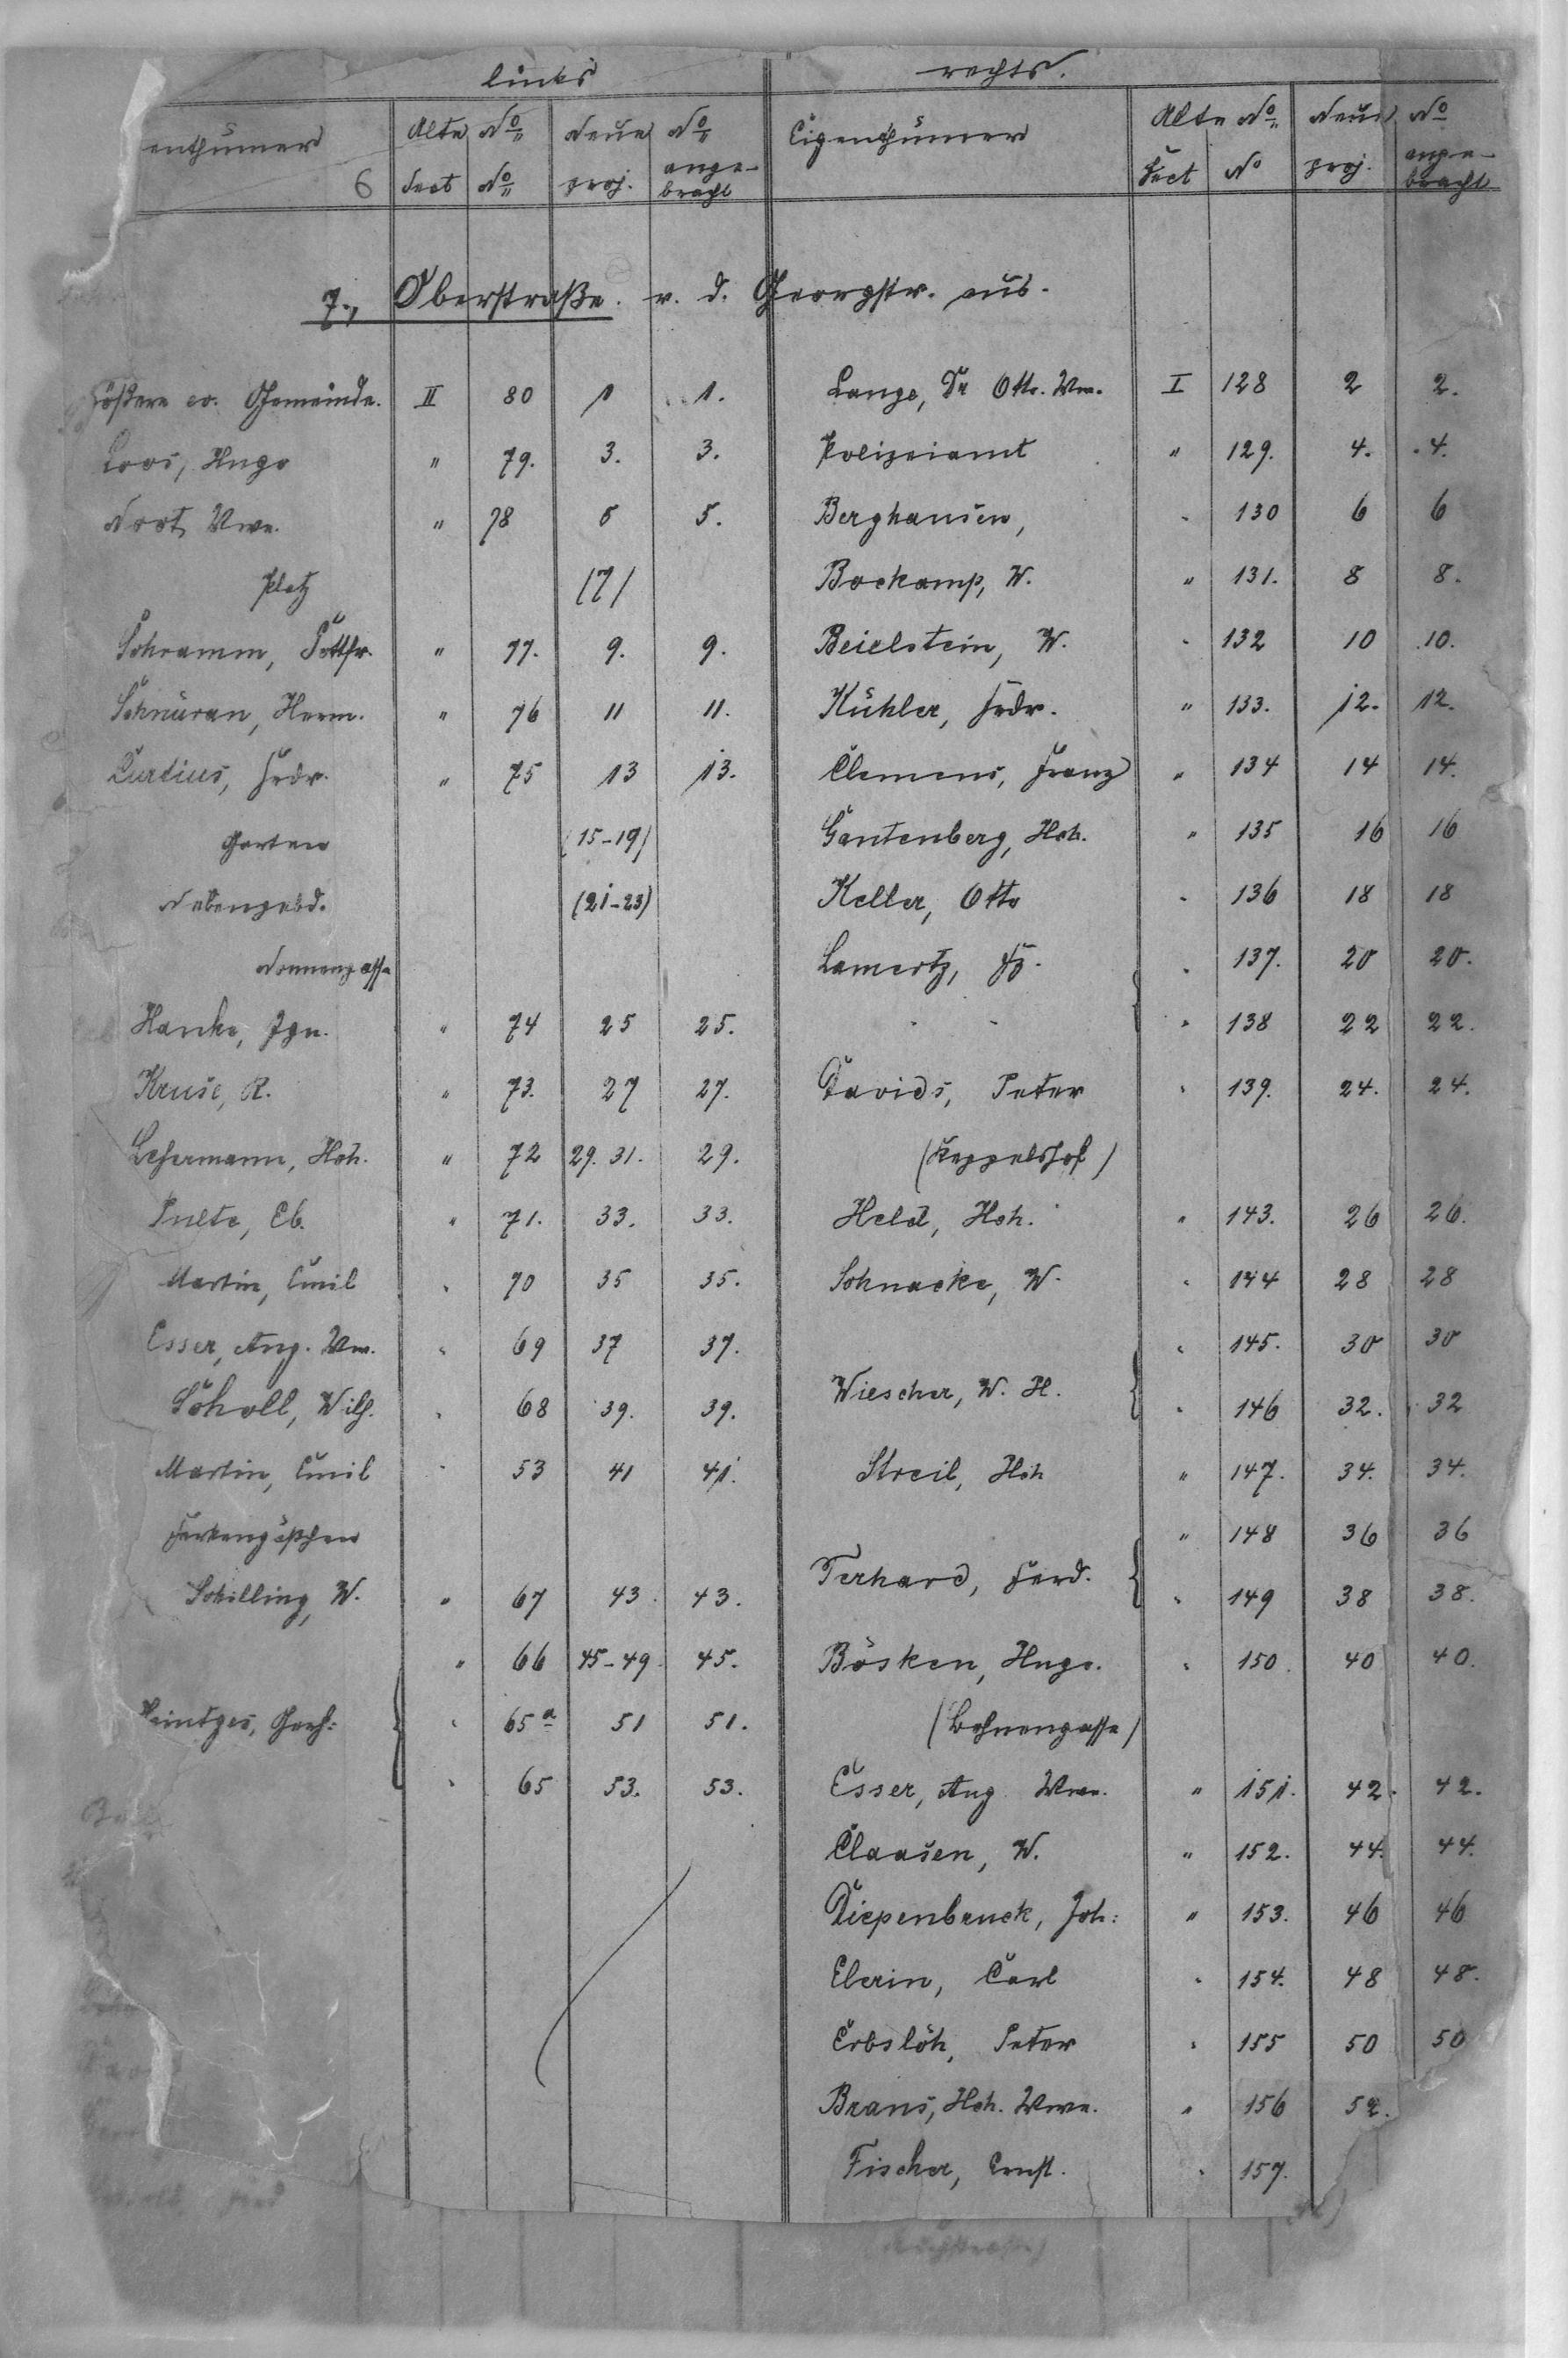 links rechts.
enthümer Alte No Neue No Eigenthümer Alte No Neue No
6 Sect No proj. ange-bracht Sect No proj. ange-bracht
7., Oberstraße. v. d. Georgstr. aus.
größere ev. Gemeinde. II 80 1 1. Lange, Dr Otto. Ww. I 128 2 2.
Loos, Hugo " 79. 3. 3. Polizeiamt " 129. 4. 4.
Noot Wwe. " 78 5 5. Berghausen, " 130 6 6
Platz (7) Bockamp, W. " 131. 8 8.
Schramm, Gottfr. " 77. 9. 9. Beielstein, W. " 132 10 10.
Schnüran, Herm. " 76 11 11. Kühler, Frdr. " 133. 12. 12.
Curtius, Frdr. " 75 13 13. Clemens, Franz " 134 14 14.
Garten (15-19) Gantenberg, Hch. " 135 16 16
Nebengebd. (21-23) Keller, Otto " 136 18 18
Nonnengasse Lamertz, Fz. " 137. 20 20.
Hanke, Ign. " 74 25 25. " " " 138 22 22.
Kruse, R. " 73. 27 27. Davids, Peter " 139. 24. 24.
Lehermann, Hch. " 72 29. 31. 29. (Keppelshof)
Pulte, Eb. " 71. 33. 33. Held, Hch. " 143. 26 26.
Martin, Emil " 70 35 35. Schnacke, W. " 144 28 28
Esser, Aug. Ww. " 69 37 37. " 145. 30 30
Scholl, Wilh. " 68 39. 39. Wiescher, W. H. " 146 32. 32
Martin, Emil " 53 41 41. Streil, Hch " 147. 34. 34.
Ferkengäßchen " 148 36 36
Schilling, W. " 67 43. 43. Terhard, Ferd. " 149 38 38.
" 66 45-49. 45. Bösken, Hugo. " 150. 40 40.
Heintges, Gerh: " 65a 51 51. (Bohnengasse)
" 65 53. 53. Esser, Aug Wwe. " 151. 42. 42.
Claasen, W. " 152. 44. 44.
Diepenbruck, Joh: " 153. 46 46
Eberin, Carl " 154. 48 48.
Erbslöh, Peter " 155 50 50
Brans, Hch. Wwe. " 156 52.
Fischer, Ernst. " 157.